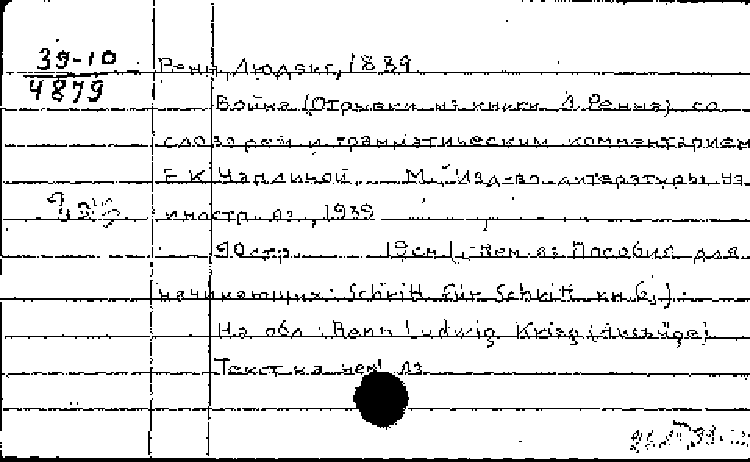 39-10
4879
Ренн, Людвиг, 1889
Война (Отрывки из книги Л. Ренна) со
словарем и грамматическим комментарием
Е К Чарлиной. М., Изд-во литературы на
иностр. яз., 1939
90 стр. 19 см (. Нем яз Пособия для
начинающих: Schritt für Schritt кн 6,).
На обл: Renn Ludwig Krieg (Auszüge)
Текст на нем яз